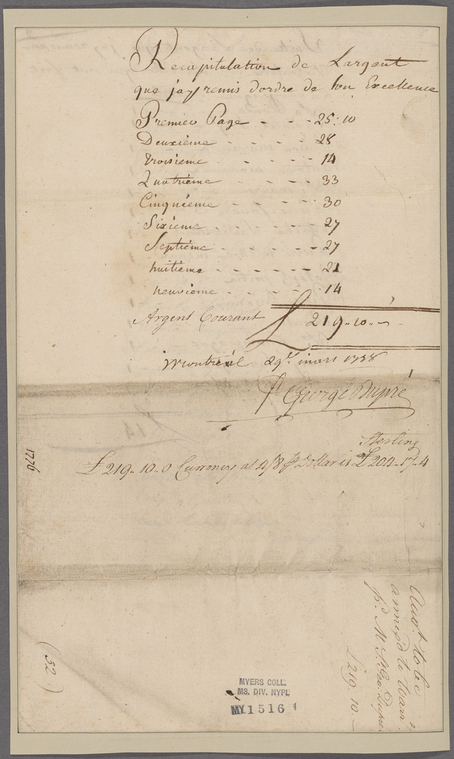 Recapitulation de Largent
que jay remis dordre de Son Excellence
Premiere Page - - - 25..10
Deuxiéme - - - - 28
troisieme - - - - 14
Quatriéme - - - 33
Cinquiéme - - - - 30
Sixiéme - - - - 27
Septiéme - - - - - 27
huitiéme - - - - - 21
neuviéme - - - - 14
Argent Courant £ 219..10..
Montreal 29 mars 1778
George Dupré
Sterling
£ 219..10..0 Currency at 4/8 Dollar is £ 204..17..4
1776
(52)
to be
annexd to
Mr St Geo Dupré
£ 219..10
MYERS COLL.
MS. DIV. NYPL
MY 1516